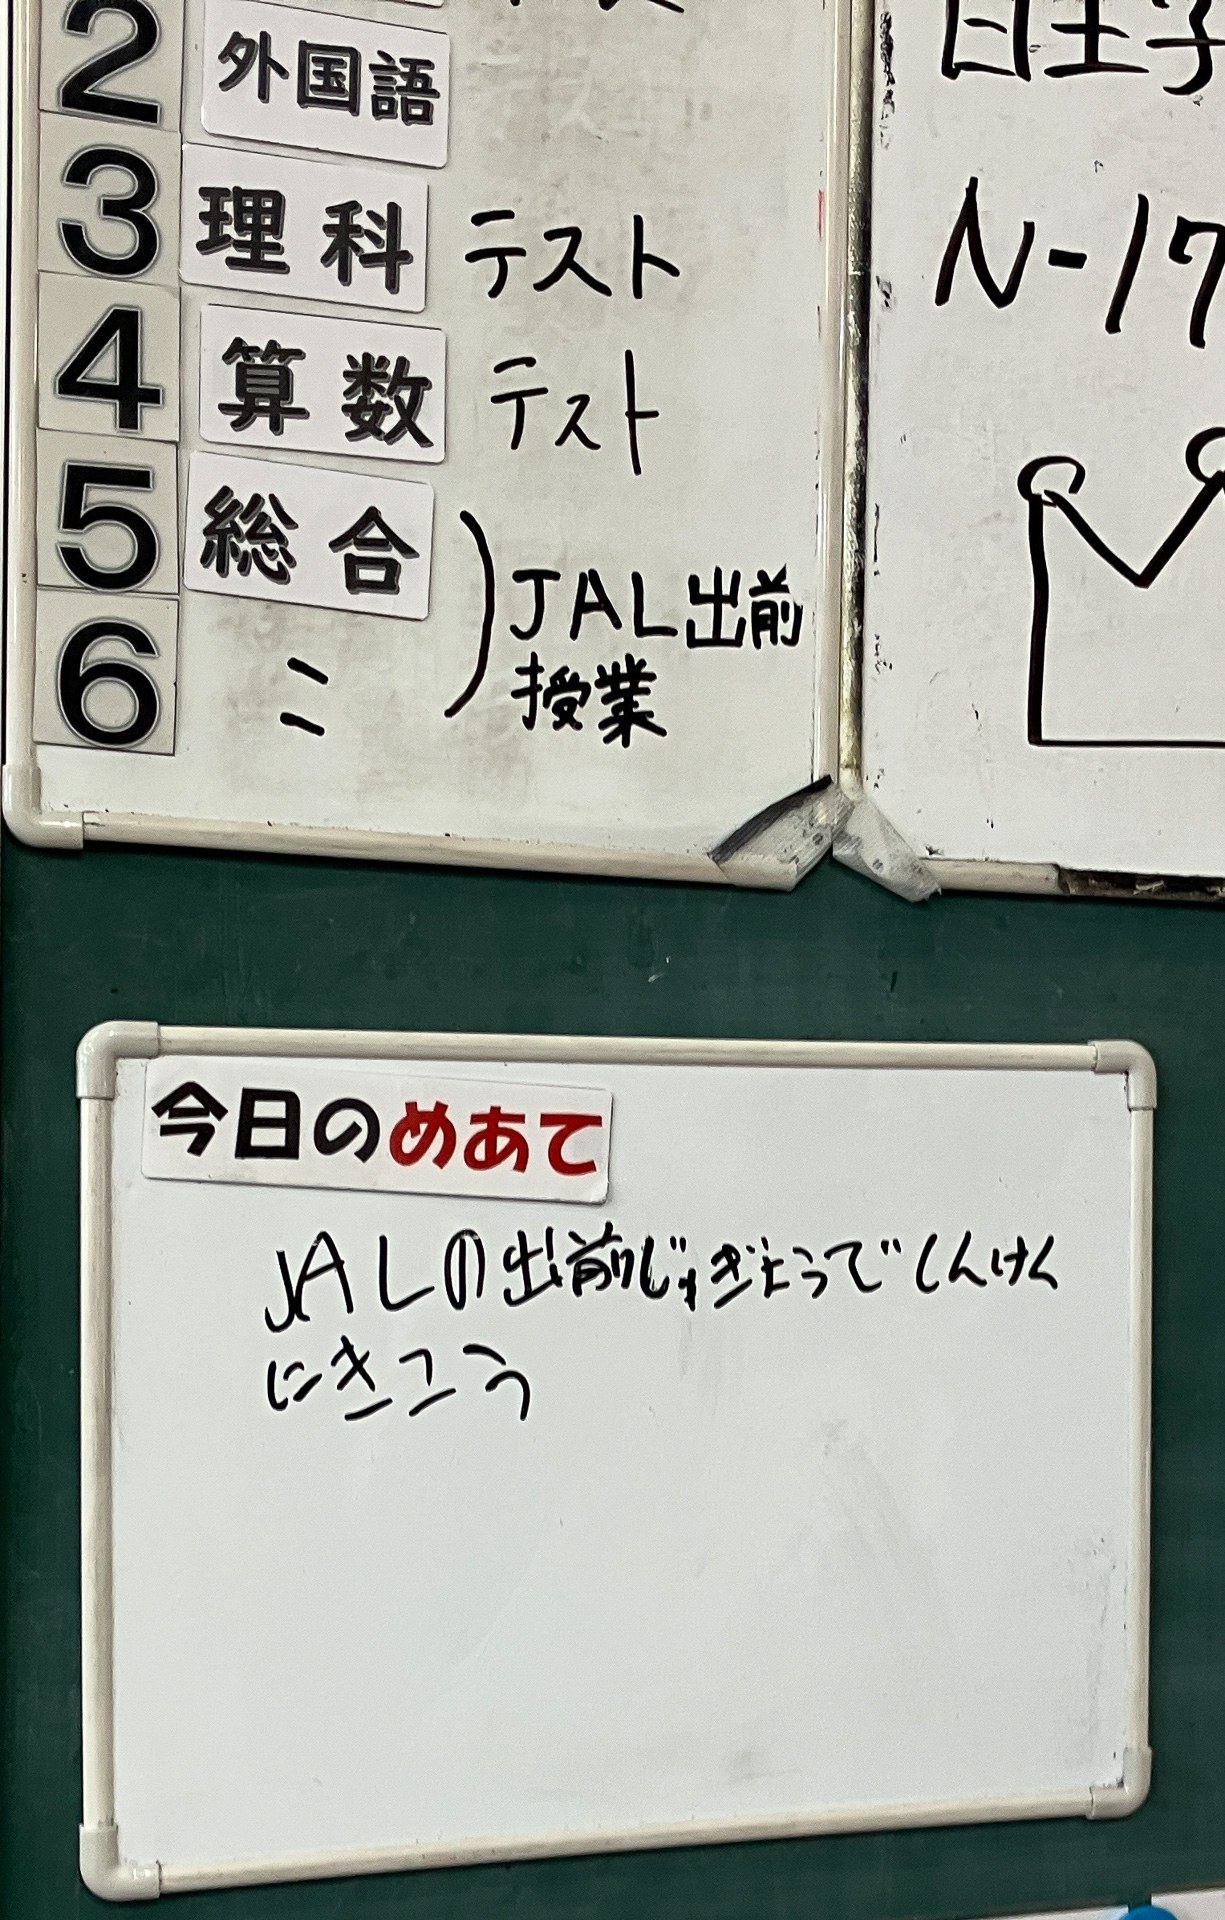 2 外国語
3 理科 テスト
4 算数 テスト
5 総合
6 〃
JAL出前
授業
N-17
今日のめあて
JALの出前じゅぎょうでしんけん
にきこう